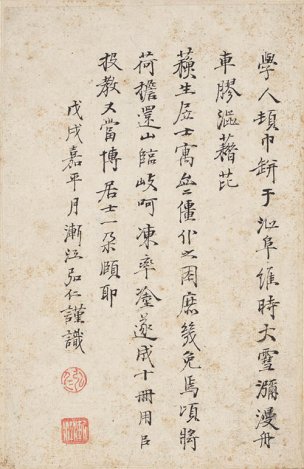 學人巾缾于沁阜維時大雪瀰漫舟
車膠澁藉芘
蘋生居士寓盦僵仆之困庶幾免焉頃將
荷擔還山臨歧呵凍率塗遂成十冊用㠯
投教大當博居士一朶頤耶
戊戌嘉平月漸江弘仁謹識